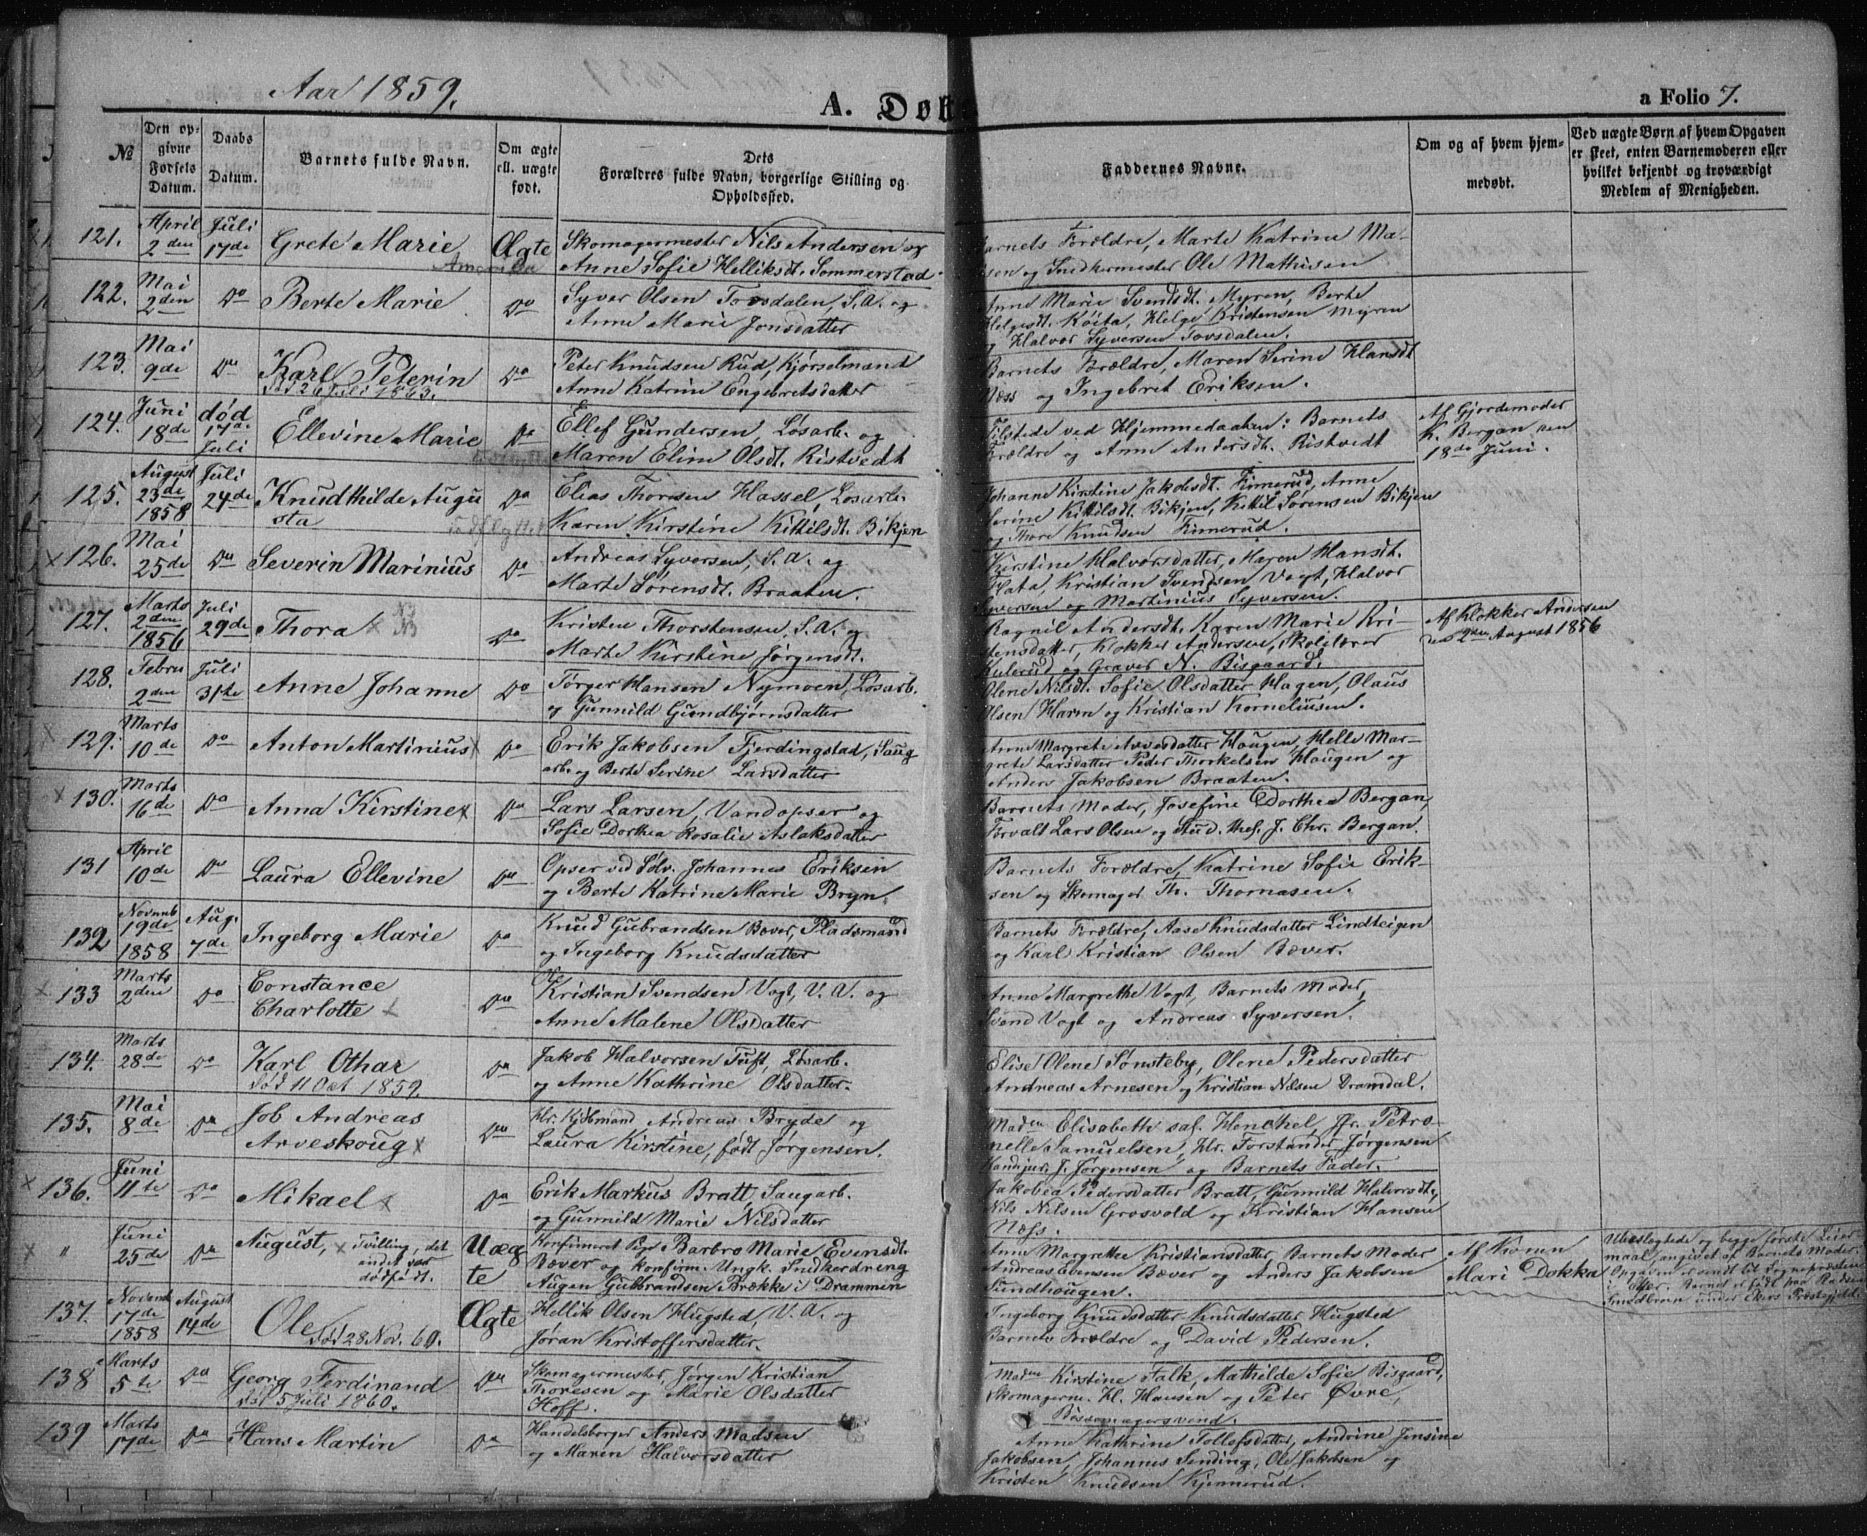 Aar 1859.
A. Døb
a Folio 7.
№
Den op-
givne
Fødsels
Datum.
Daabs
Datum.
Barnets fulde Navn.
Om ægte
ell. uægte
født.
Dets
Forældres fulde Navn, borgerlige Stilling og
Opholdssted.
Faddernes Navne.
Om og af hvem hjem-
medøbt.
Ved uægte Børn af hvem Opgaven
er skeet, enten Barnemoderen eller
hvilket bekjendt og troværdigt
Medlem af Menigheden.
121. April 2den Juli 17de Grete Marie Ægte
Skomagermester Nils Andersen og
Anne Sofie Helliksdt. Sommerstad
Barnets Forældre, Marte Katrine Ma-
isen og Snedkermester Ole Mathisen
Amerika
122. Mai 2den Do Berte Marie Do
Syver Olsen Tovsdalen S.A. og
Anne Marie Jonsdatter
Anne Marie Svendsdt. Myren, Berte
Helgesdt. Køita, Helge Kristensen Myren
og Halvor Syversen Tovsdalen.
123. Mai 9de Do Karl Peterin Do
Død 26 Juli 1863.
Peter Knudsen Rud, Kjørselmand
Anne Katrine Engebretsdatter
Barnets Forældre, Maren Serine Hansdt
Næss og Ingebret Eriksen.
124. Juni 18de død 17de Juli Ellevine Marie Do
Ellef Gundersen, Løsarb. og
Maren Eline Olsdt. Ristvedt
Tilstede ved Hjemmedaaben: Barnets
Forældre og Anne Andersdt. Ristvedt
Af Gjordemoder
K. Bergan den
18de Juni.
125. August 23de 1858 Juli 24de Knudthilde Augu
sta Do
udflyttet
Elias Thoresen Hassel, Løsarb.
Karen Kirstine Kittilsdt. Bikjen
Johanne Kirstine Jakobsdt. Fimerud, Anne
Serine Kittilsdt. Bikjen, Kittil Sørensen Bikjen
og Thore Knudsen Fimerud.
126. Mai 25de Do Severin Marinius Do
Andreas Syversen, S.A. og
Marte Sørensdt. Braaten.
Kirstine Halvorsdatter, Maren Hansdt.
Flata, Kristian Svendsen Vogt, Halvor
Syversen og Martinius Syversen.
127. Marts 2den 1856 Juli 29de Thora Do
Kristen Thorstensen, S.A. og
Marte Kirstine Jørgensdt.
Ragnil Andersdt. Karen Marie Kri-
stensdatter, Klokker Andersen, Skolelærer
Kulerud og Graver N. Bisgaard.
Af Klokker Andersen
den 2den August 1856
128. Febru 2den Juli 31te Anne Johanne Do
Tørger Hansen Nymoen, Løsarb.
og Gunnild Gundbjørnsdatter
Olene Nilsdt. Sofie Olsdatter Hagen, Olaus
Olsen Harm og Kristian Korneliusen.
129. Marts 10de Do Anton Martinius Do
Erik Jakobsen Fjerdingstad, Saug
arb. og Berte Serine Larsdatter
Anne Margrete Aversdatter Haugen, Helle Mar-
grete Larsdatter Peder Thorkelsen Haugen og
Anders Jakobsen Braaten.
130. Marts 16de Do Anna Kirstine Do
Lars Larsen, Vandopser og
Sofie Dorthea Rosalie Aslaksdatter
Barnets Moder, Josefine Dorthea Bergan,
Forvalt Lars Olsen og Stud. theol. J. Chr. Bergan.
131 April 10de Do Laura Ellevine Do
Opser ved Sølv. Johannes Eriksen
og Berte Katrine Marie Bryn.
Barnets Forældre, Katrine Sofie Erik-
sen og Skomager Th. Thomasen.
132 Novemb 19de 1858 Aug. 7de Ingeborg Marie Do
Knud Gubrandsen Bæver, Pladsmand
og Ingeborg Knudsdatter
Barnets Forældre, Aase Knudsdatter Lindteigen
og Karl Kristian Olsen Bæver.
133 Marts 2den Do Constance
Charlotte Do
Ole
Kristian Svendsen Vogt, V.A. og
Anne Malene Olsdatter
Anne Margrethe Vogt, Barnets Moder,
Svend Vogt og Andreas Syversen.
134. Marts 28de Do Karl Othar Do
Død 11 Oct 1859.
Jakob Halvorsen Tuft, Løsarb.
og Anne Kathrine Olsdatter.
Elise Olene Sønsteby, Olene Pedersdatter
Andreas Arnesen og Kristian Nilsen Dramdal.
135. Mai 8de Do Job Andreas
Arveskoug Do
Hr. Kjøbmand Andreas Bryde og
Laura Kirstine, født Jørgensen.
Maden Elisabeth sal. Henchel, Jfr. Petro-
nelle Samuelsen, Hr. Forstander Jørgensen
Kand jur. J. Jørgensen og Barnets Fader.
136. Juni 11te Do Mikael Do
Erik Markus Bratt, Saugarb.
og Gunnild Marie Nilsdatter
Jakobea Pedersdatter Bratt, Gunnild Halvorsdt.
Nils Nilsen Grosvold og Kristian Hansen
Næss.
" Juni 25de Do August, Tvilling, det
andet var
dødfødt. Uæg
te
Konfirmeret Pige Barbro Marie Evensdt.
Bæver og Konfirm. Ungk. Snedkerdreng
Augen Gulbrandsen Brække i Drammen
Anne Margrethe Kristiansdatter, Barnets Moder
Andreas Evensen Bæver og Anders Jakobsen
Sundhougen.
Af Konen
Mari Dokka
Ubeslægtede og begge første Leier
maal, angivet af Barnets Moder.
Opgaven er sendt til Sognepræsten
i Eker. Barnet er født paa Pladsen
Smedbrøn under Ekers Præstegjeld.
137. Novemb 17de 1858 August 14de Ole Ægte
Død 28 Nov. 60.
Hellik Olsen Hugsted, V.A. og
Jøran Kristoffersdatter.
Ingeborg Knudsdatter Knudsdatter Hugsted
Barnets Forældre og David Pedersen.
138 Marts 5te Do Georg Ferdinand Do
død 5 Juli 1860.
Skomagermester, Jørgen Kristian
Thoresen og Marie Olsdatter
Hoff.
Maden Kirstine Falk, Mathilde Sofie Bisgaard,
Skomagerne Hl. Hansen og Peter Øvre,
Bøssemagersvend.
139 Marts 17de Do Hans Martin Do
Handelsborger Anders Madsen
og Maren Halvorsdatter
Anne Kathrine Tollefsdatter, Andrine Jensine
Jakobsen, Johannes Sending, Ole Jakobsen og
Kristen Knudsen Kjennerud.